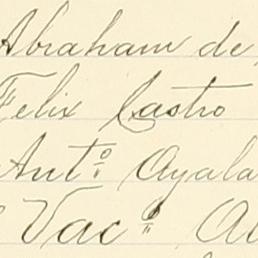 Abraham de
Felix Castro
Ant.º Ayala
Vac.º